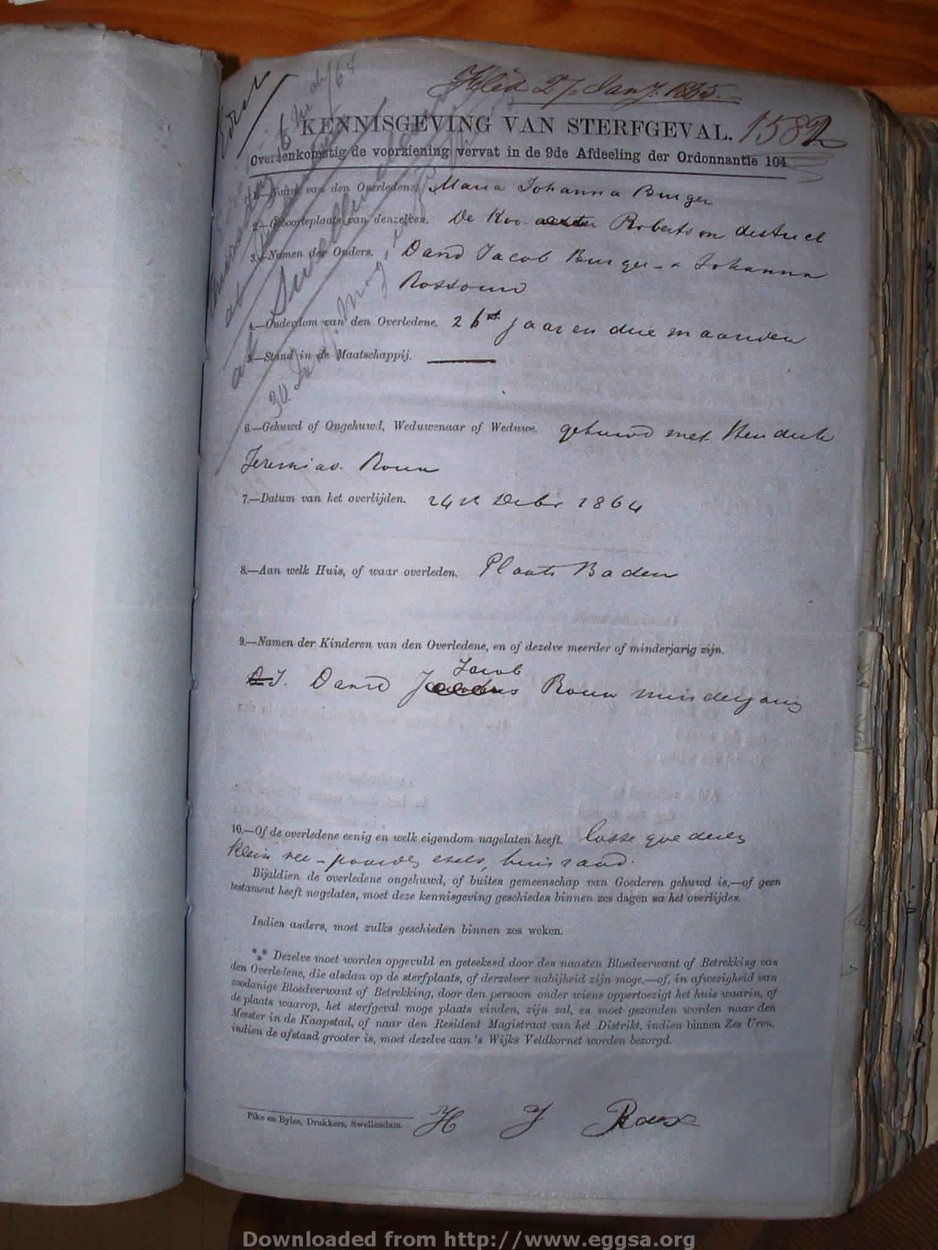 Filed 27 Jany. 1865.
1582
KENNISGEVING VAN STERFGEVAL.
Overeenkomstig de voorziening vervat in de 9de Afdeeling der Ordonnantie 104.
1.—Naam van den Overledene. Maria Johanna Burger
2.—Geboorteplaats van denzelven. De Hoo Robertson district
3.—Namen der Ouders. David Jacob Burger & Johanna
Rossouw
4.—Ouderdom van den Overledene. 26st jaar en drie maanden
5.—Stand in de Maatschappij. ———
6.—Gehuwd of Ongehuwd, Weduwenaar of Weduwe. gehuwd met Hendrik
Jeremias Roux
7.—Datum van het overlijden. 24st Decbr 1864
8.—Aan welk Huis, of waar overleden. Plaats Baden
9.—Namen der Kinderen van den Overledene, en of dezelve meerder of minderjarig zijn.
Jacob
David Roux minderjarig
10.—Of de overledene eenig en welk eigendom nagelaten heeft. losse goederen
klein vee - paarden esels, huisraad.
Bijaldien de overledene ongehuwd, of buiten gemeenschap van Goederen gehuwd is,—of geen
testament heeft nagelaten, moet deze kennisgeving geschieden binnen zes dagen na het overlijden.
Indien anders, moet zulks geschieden binnen zes weken.
Dezelve moet worden opgevuld en geteekend door den naasten Bloedverwant of Betrekking van
den Overledene, die alsdan op de sterfplaats, of derzelver nabijheid zijn moge,—of, in afwezigheid van
zoodanige Bloedverwant of Betrekking, door den persoon onder wiens oppertoezigt het huis waarin, of
de plaats waarop, het sterfgeval moge plaats vinden, zijn zal, en moet gezonden worden naar den
Meester in de Kaapstad, of naar den Resident Magistraat van het Distrikt, indien binnen Zes Uren,
indien de afstand grooter is, moet dezelve aan 's Wijks Veldkornet worden bezorgd.
Pike en Byles, Drukkers, Swellendam.
H J Roux
Downloaded from http://www.eggsa.org